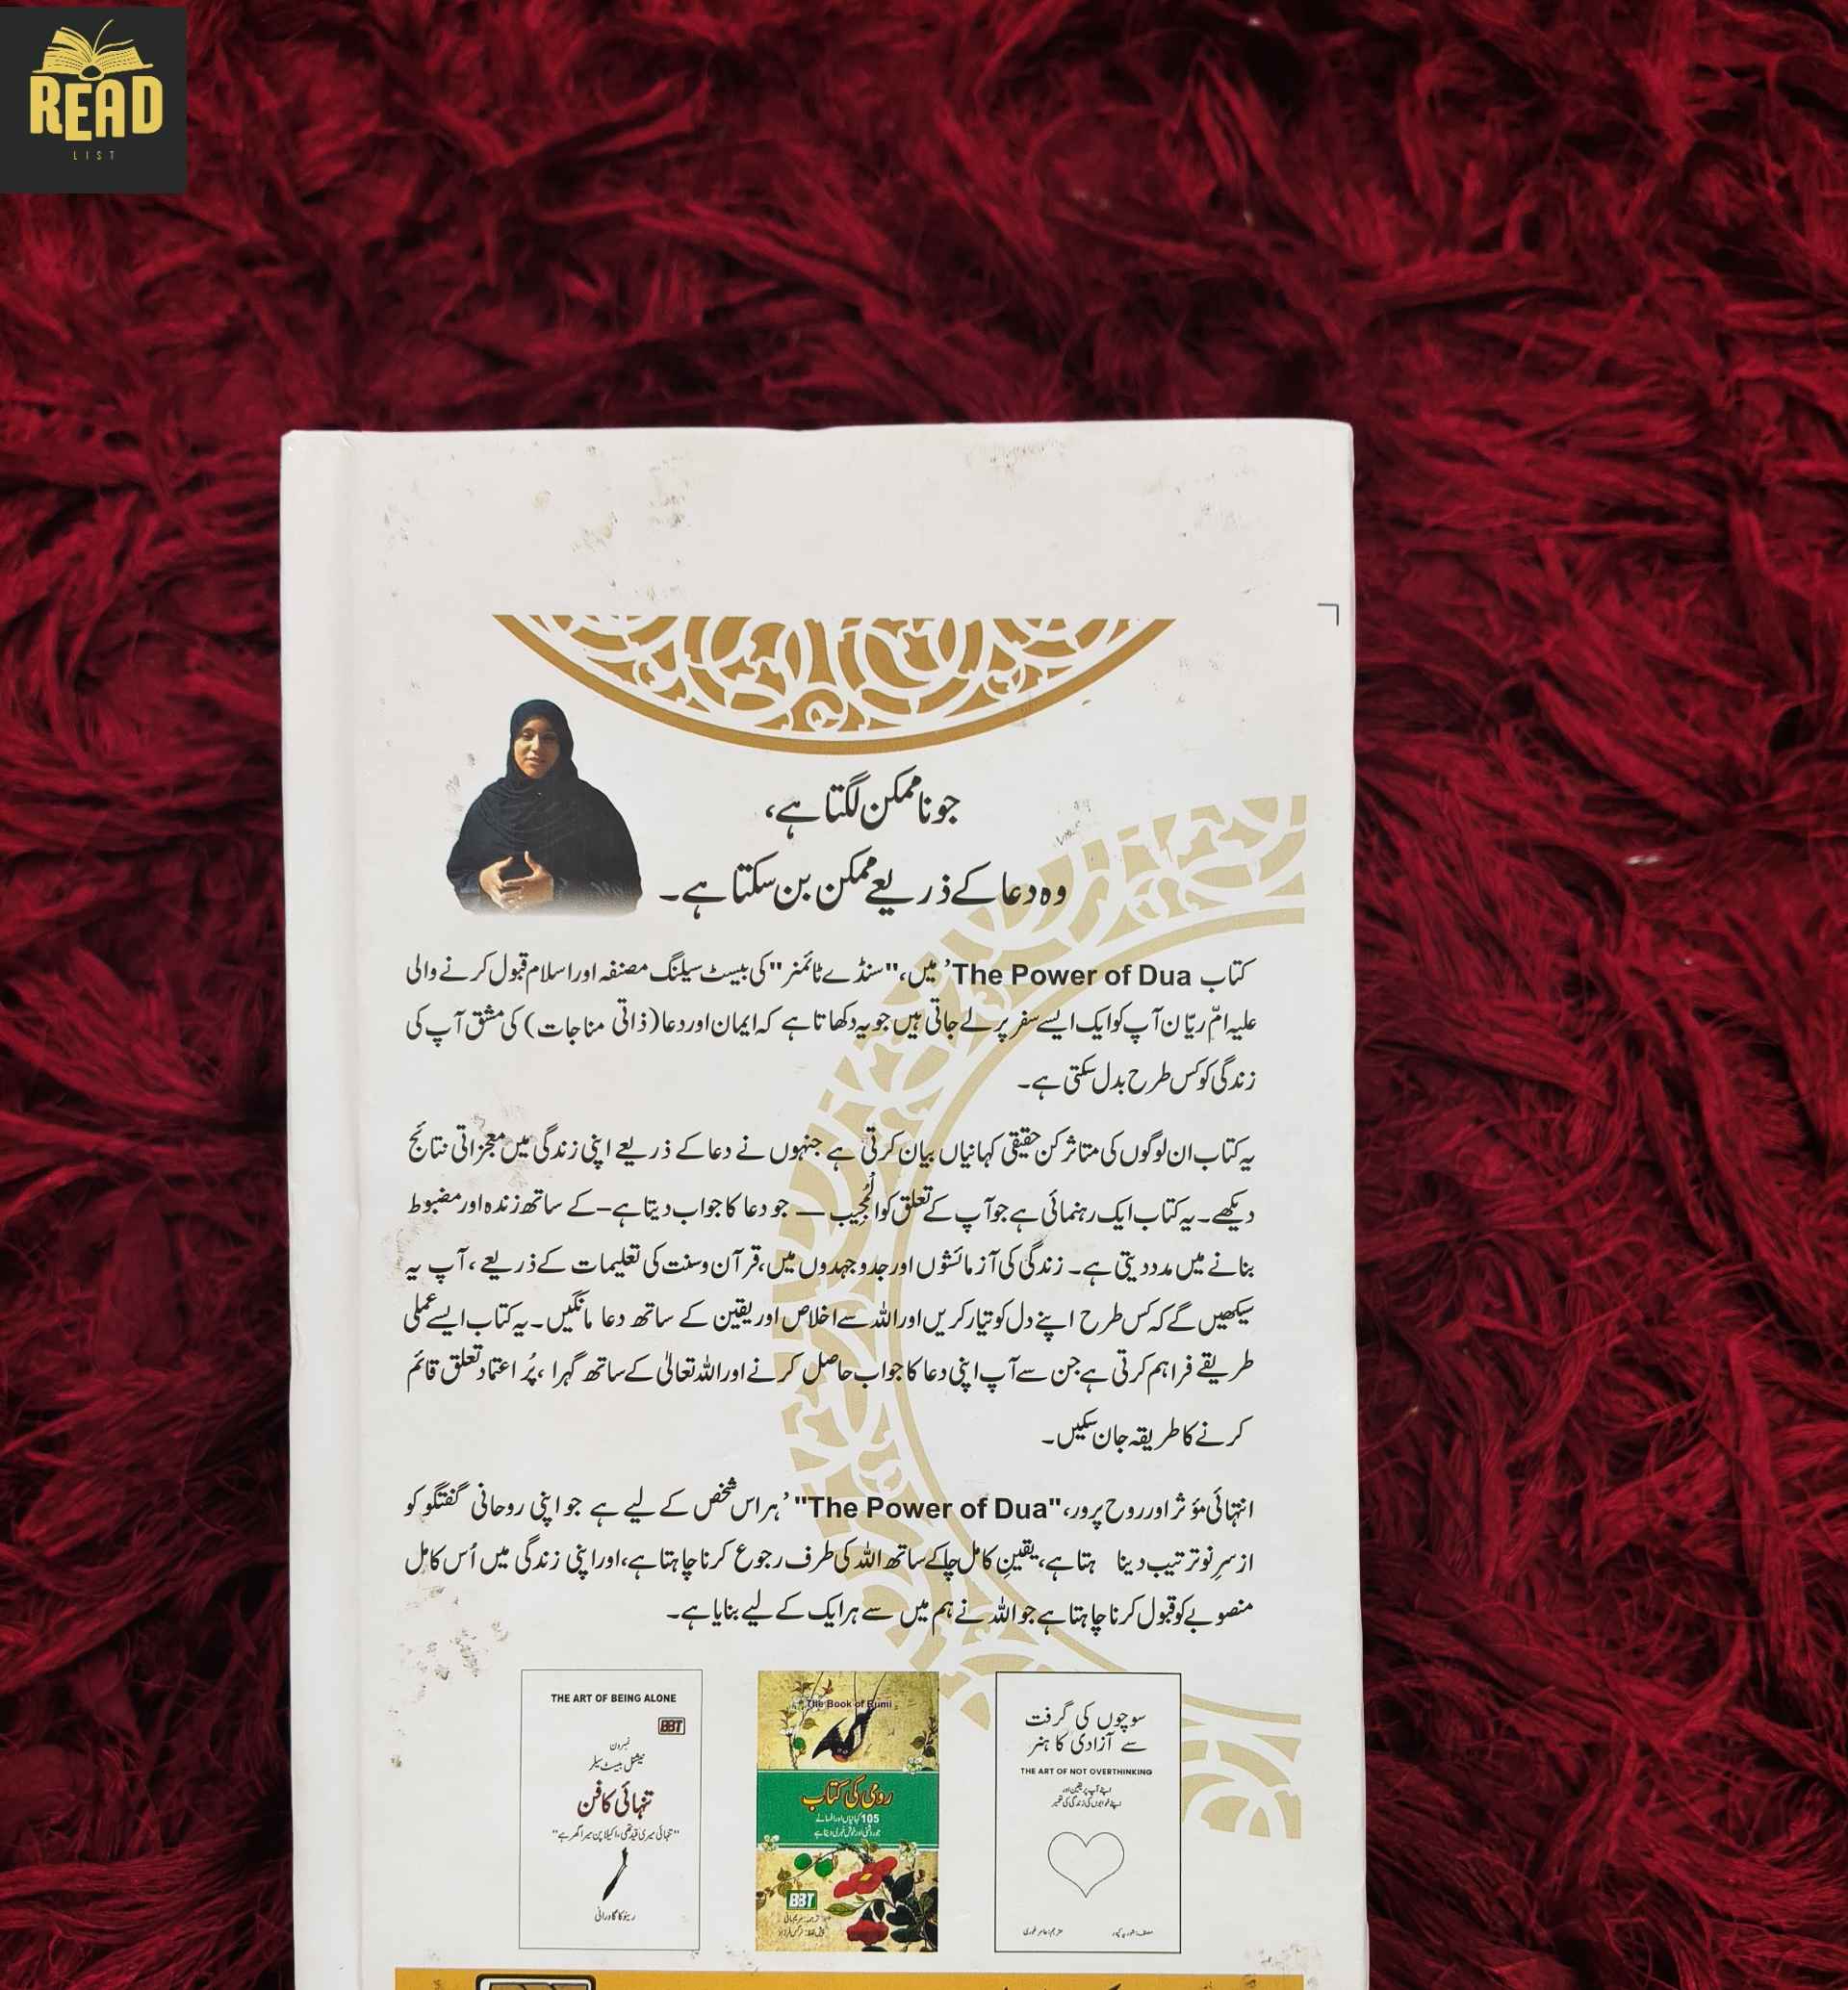 READ
LIST
جو ناممکن لگتا ہے،
وہ دعا کے ذریعے ممکن بن سکتا ہے۔
کتاب The Power of Dua’ میں، "سنڈے ٹائمنر" کی بیسٹ سیلنگ مصنفہ اور اسلام قبول کرنے والی
علیہ امّ ریّان آپ کو ایک ایسے سفر پر لے جاتی ہیں جو یہ دکھاتا ہے کہ ایمان اور دعا (ذاتی مناجات) کی مشق آپ کی
زندگی کو کس طرح بدل سکتی ہے۔
یہ کتاب ان لوگوں کی متاثر کن حقیقی کہانیاں بیان کرتی ہے جنہوں نے دعا کے ذریعے اپنی زندگی میں معجزاتی نتائج
دیکھے۔ یہ کتاب ایک رہنمائی ہے جو آپ کے تعلق کو المُجیب — جو دعا کا جواب دیتا ہے – کے ساتھ زندہ اور مضبوط
بنانے میں مدد دیتی ہے۔ زندگی کی آزمائشوں اور جدوجہدوں میں، قرآن و سنت کی تعلیمات کے ذریعے، آپ یہ
سیکھیں گے کہ کس طرح اپنے دل کو تیار کریں اور اللہ سے اخلاص اور یقین کے ساتھ دعا مانگیں۔ یہ کتاب ایسے عملی
طریقے فراہم کرتی ہے جن سے آپ اپنی دعا کا جواب حاصل کرنے اور اللہ تعالیٰ کے ساتھ گہرا، پُر اعتماد تعلق قائم
کرنے کا طریقہ جان سکیں۔
انتہائی مؤثر اور روح پرور، "The Power of Dua"’ ہر اس شخص کے لیے ہے جو اپنی روحانی گفتگو کو
از سرِ نو ترتیب دینا ہتا ہے، یقینِ کامل چاکے ساتھ اللہ کی طرف رجوع کرنا چاہتا ہے، اور اپنی زندگی میں اُس کامل
منصوبے کو قبول کرنا چاہتا ہے جو اللہ نے ہم میں سے ہر ایک کے لیے بنایا ہے۔
سوچوں کی گرفت
سے آزادی کا ہنر
THE ART OF NOT OVERTHINKING
اپنے آپ پر یقین اور
اپنے خوابوں کی زندگی کی تعمیر
The Book of Rumi
رومی کی کتاب
105 کہانیاں اور افسانے
BBT
THE ART OF BEING ALONE
BBT
نمبر ون
نیشنل بیسٹ سیلر
تنہائی کا فن
"تنہائی میری قید تھی، اکیلا پن میرا گھر ہے"
رینوکا گاورانی